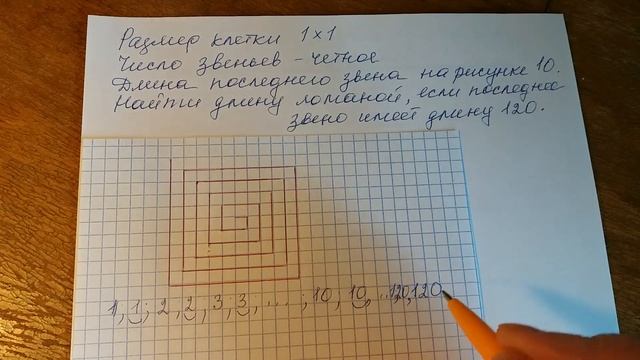 Размер клетки 1×1
Число звеньев - четное
Длина последнего звена на рисунке 10.
Найти длину ломаной, если последнее
звено имеет длину 120.
1, 1; 2, 2, 3; 3, .... ; 10, 10, ...120, 120